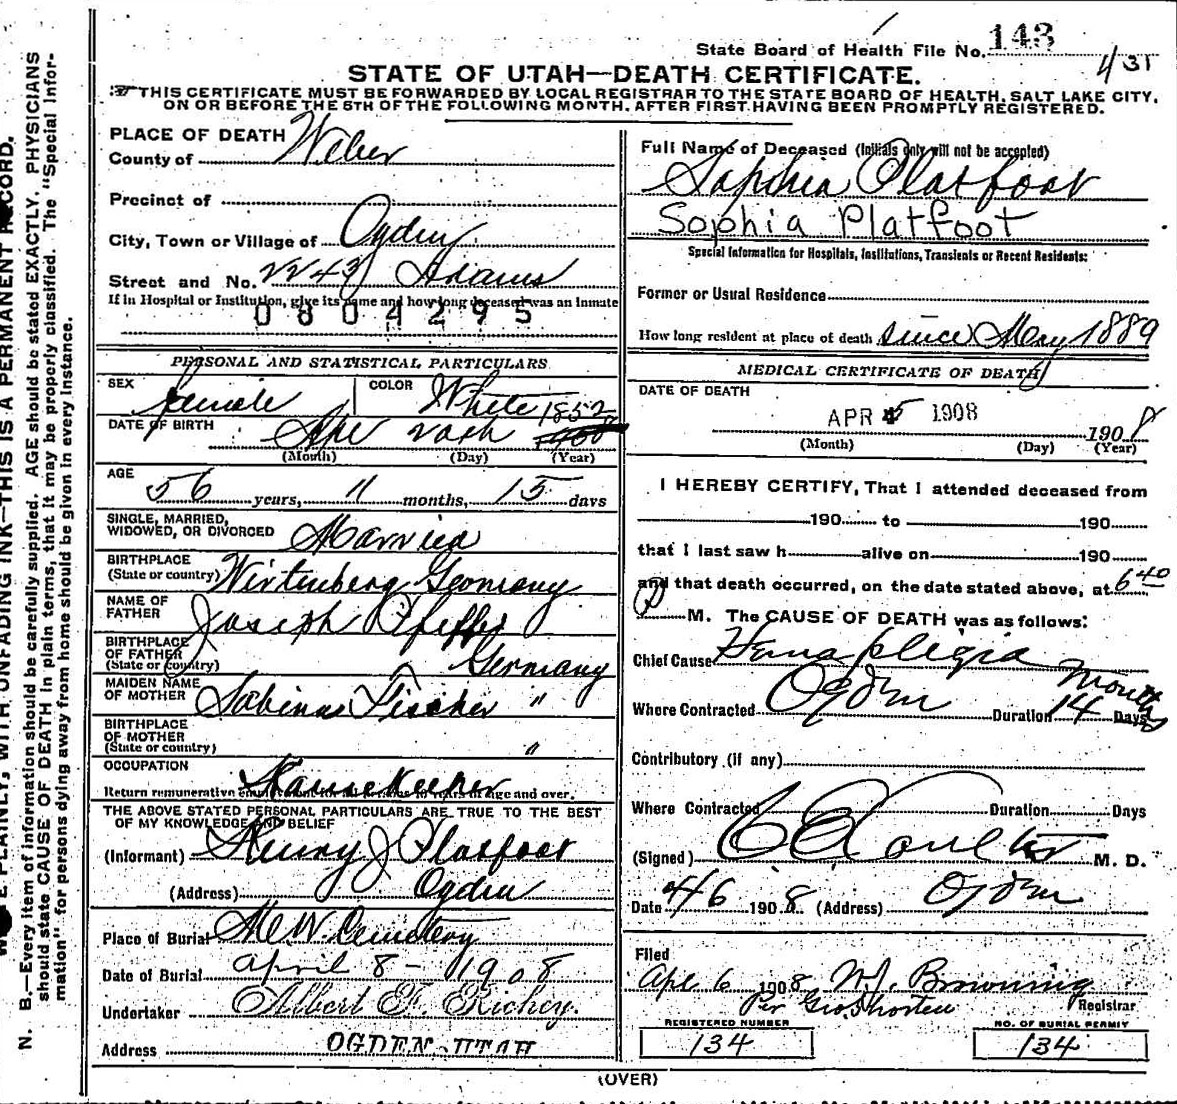 State Board of Health File No. 143
4/31
STATE OF UTAH—DEATH CERTIFICATE.
THIS CERTIFICATE MUST BE FORWARDED BY LOCAL REGISTRAR TO THE STATE BOARD OF HEALTH, SALT LAKE CITY,
ON OR BEFORE THE 5TH OF THE FOLLOWING MONTH, AFTER FIRST HAVING BEEN PROMPTLY REGISTERED.
PLACE OF DEATH
County of Weber
Precinct of
City, Town or Village of Ogden
Street and No. 2243 Adams
If in Hospital or Institution, give its name and how long deceased was an inmate
0804295
PERSONAL AND STATISTICAL PARTICULARS
SEX female COLOR White
DATE OF BIRTH Apr 20th 1852
(Month) (Day) (Year)
AGE 56 years, 11 months, 15 days
SINGLE, MARRIED,
WIDOWED, OR DIVORCED Married
BIRTHPLACE
(State or country) Wirtenberg Germany
NAME OF
FATHER Joseph Pfeffer
BIRTHPLACE
OF FATHER
(State or country) Germany
MAIDEN NAME
OF MOTHER Sabina Fischer "
BIRTHPLACE
OF MOTHER
(State or country) "
OCCUPATION
Housekeeper
Return remunerative age and over.
THE ABOVE STATED PERSONAL PARTICULARS ARE TRUE TO THE BEST
OF MY KNOWLEDGE AND BELIEF
(Informant) Henry J Platfoot
(Address) Ogden
Place of Burial Cemetery
Date of Burial april 8 - 1908
Undertaker Albert F. Richey.
Address OGDEN UTAH
Full Name of Deceased (Initials only will not be accepted)
Sophia Platfoot
Sophia Platfoot
Special Information for Hospitals, Institutions, Transients or Recent Residents:
Former or Usual Residence
How long resident at place of death since May 1889
MEDICAL CERTIFICATE OF DEATH
DATE OF DEATH
APR 5 1908
1908
(Month) (Day) (Year)
I HEREBY CERTIFY, That I attended deceased from
190 to 190
that I last saw h alive on 190
and that death occurred, on the date stated above, at 6 40
P M. The CAUSE OF DEATH was as follows:
Chief Cause Hemaplegia
Where Contracted Ogden Duration 14 Days months
Contributory (if any)
Where Contracted Duration Days
(Signed) Coulter M. D.
Date 4/6 1908 (Address) Ogden
Filed
Apr 6 1908 W.J. Browning
Per Geo. Shorten Registrar
REGISTERED NUMBER
134
NO. OF BURIAL PERMIT
134
(OVER)
PLAINLY, WITH UNFADING INK—THIS IS A PERMANENT RECORD.
N. B.—Every item of information should be carefully supplied. AGE should be stated EXACTLY. PHYSICIANS
should state CAUSE OF DEATH in plain terms, that it may be properly classified. The "Special Infor-
mation" for persons dying away from home should be given in every instance.